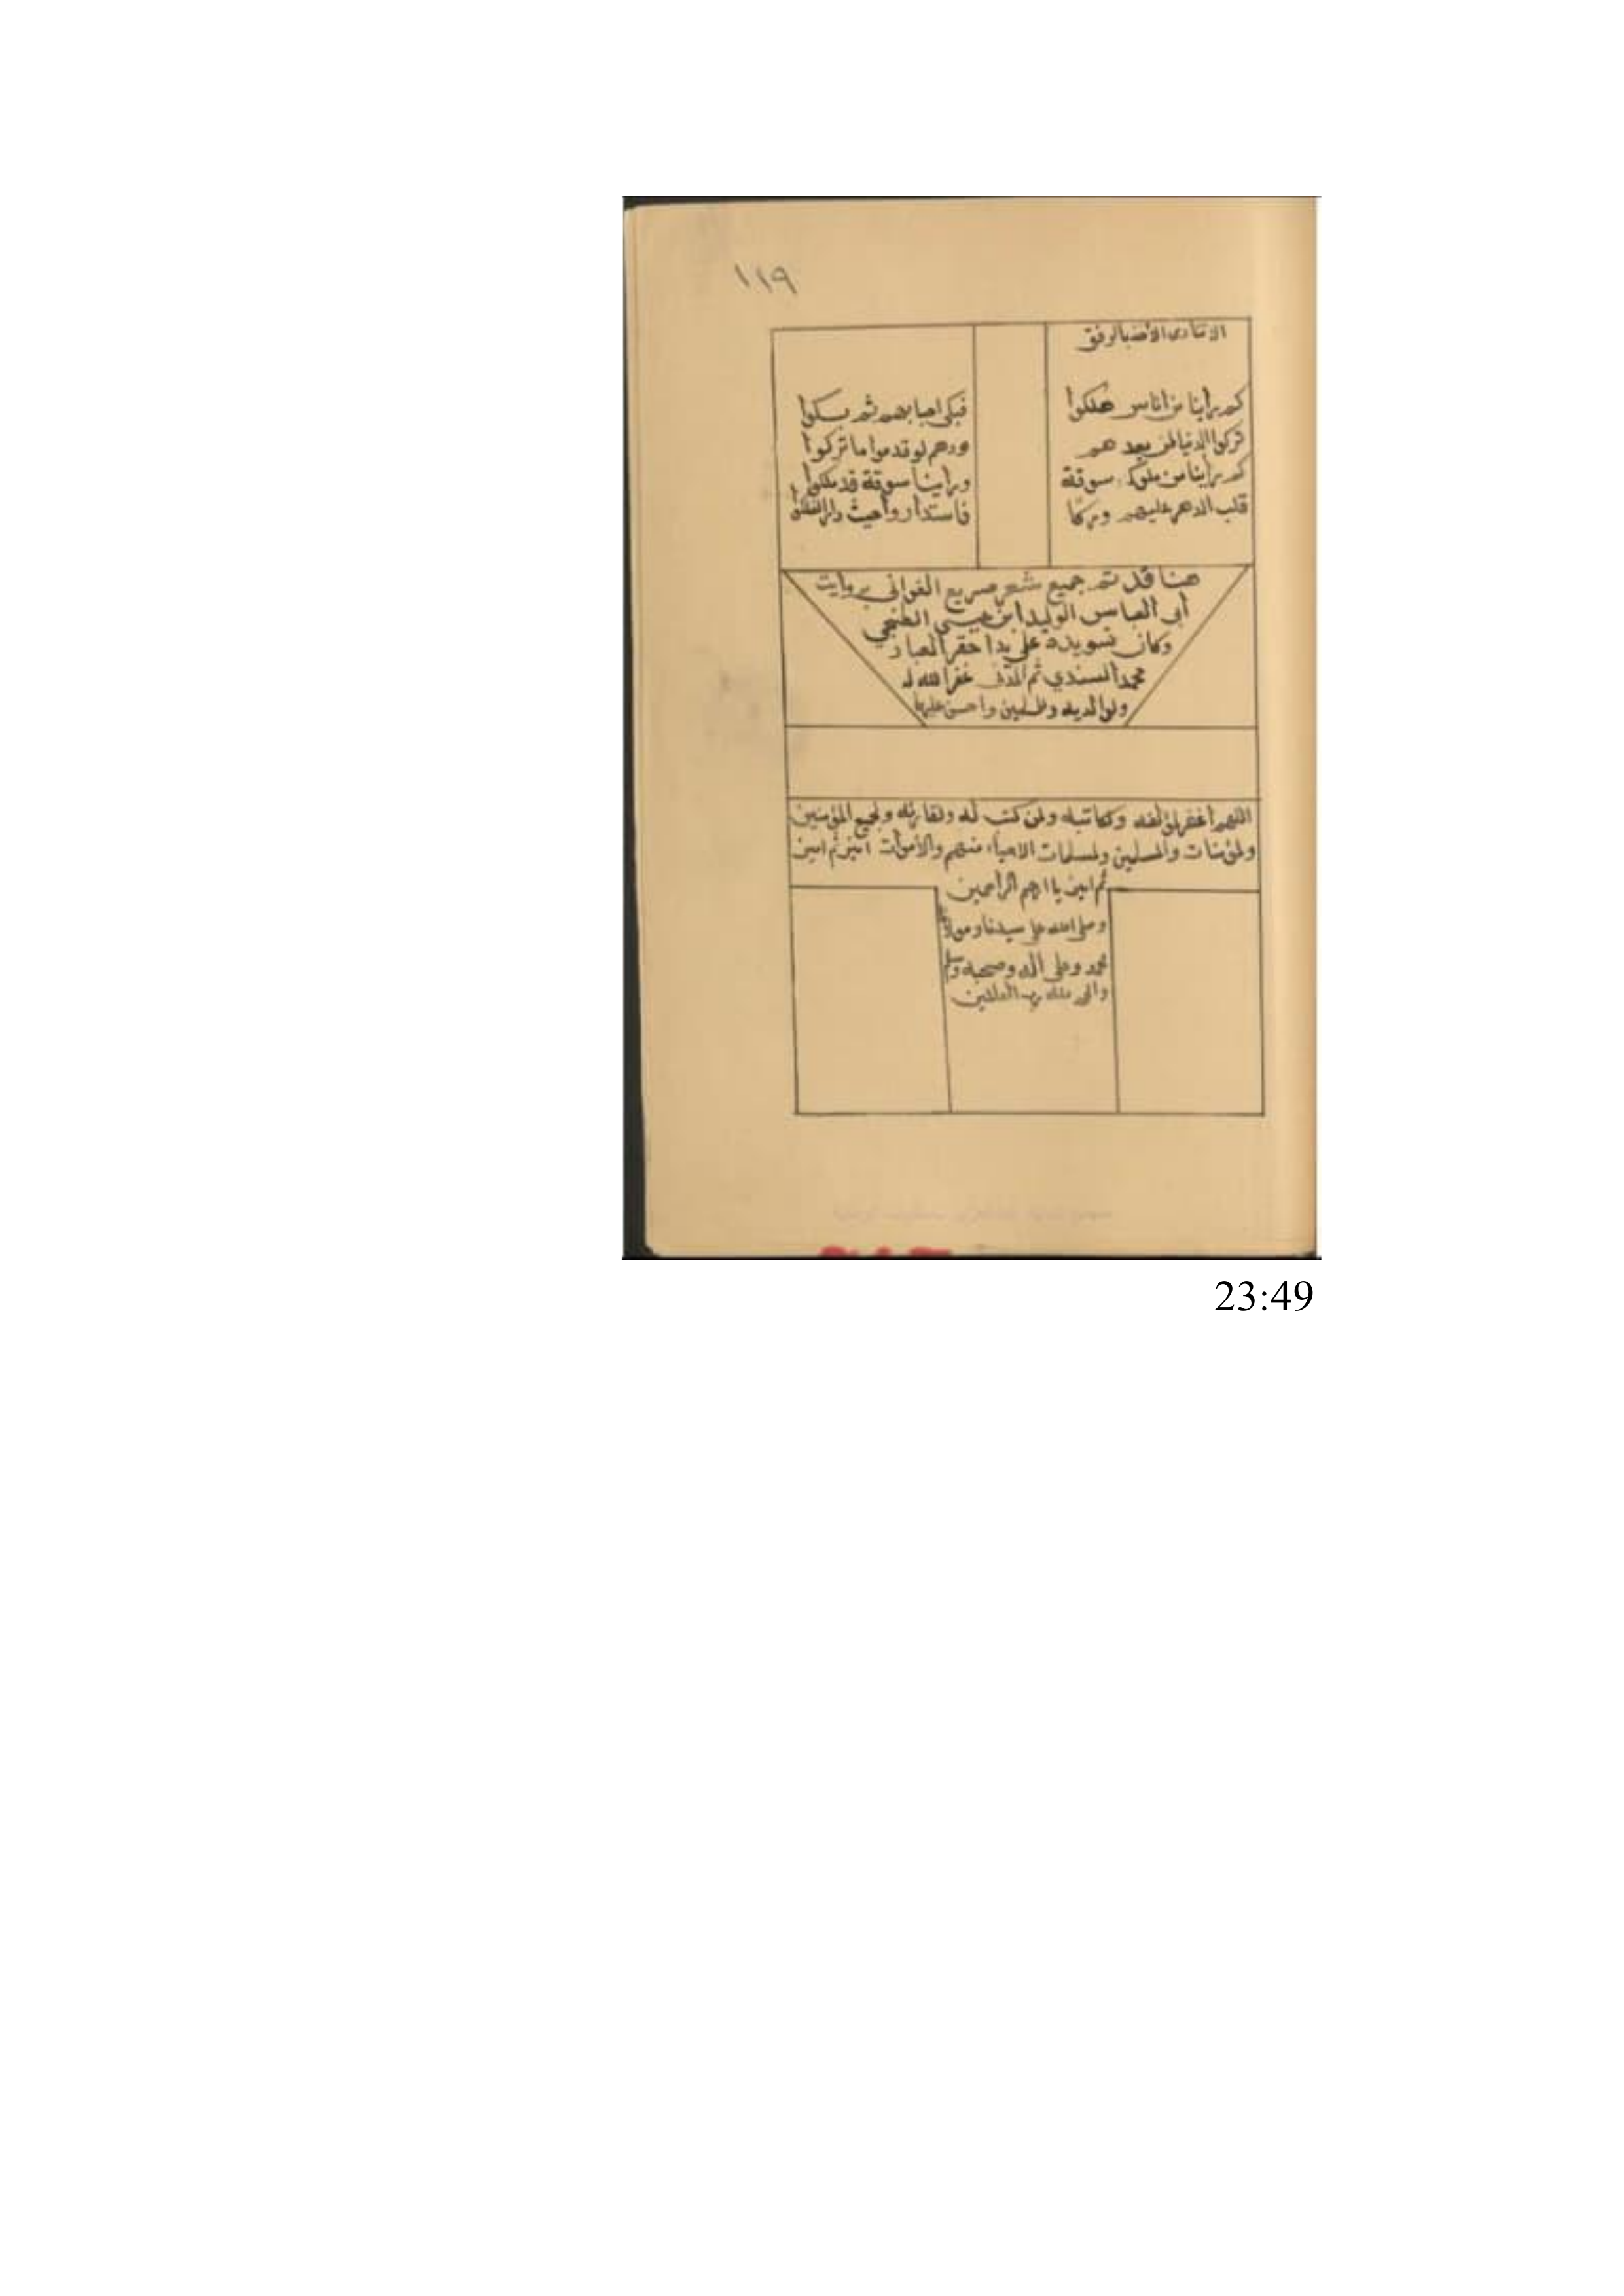 ١١٩
كم رأينا من اناس هلكوا فبكى احبابهم ثم بكوا
تركوا الدنيا لمن بعدهم ودهم لو قدموا ما تركوا
كم رأينا من ملوك سوقة ورأينا سوقة قد ملكوا
قلب الدهر عليهم وركا فاستداروا حيث دار الفلك
هنا قد تم جميع شعر صريع الغواني بروايت
أبى العباس الوليد ابن عيسى الطبيخي
وكان تسويده على يد احقر العباد
محمد السندي ثم المدني غفر الله له
ولوالديه وللمسلمين واحسن
اللهم اغفر لمؤلفه وكاتبه ولمن كتب له ولقارئه ولجميع المؤمنين
ولمؤمنات والمسلمين ولمسلمات الاحياء منهم والأموات امين ثم امين
ثم امين يا ارحم الراحمين
وصلى الله على سيدنا ومولانا
محمد وعلى اله وصحبه وسلم
والحمد لله رب العالمين
23:49